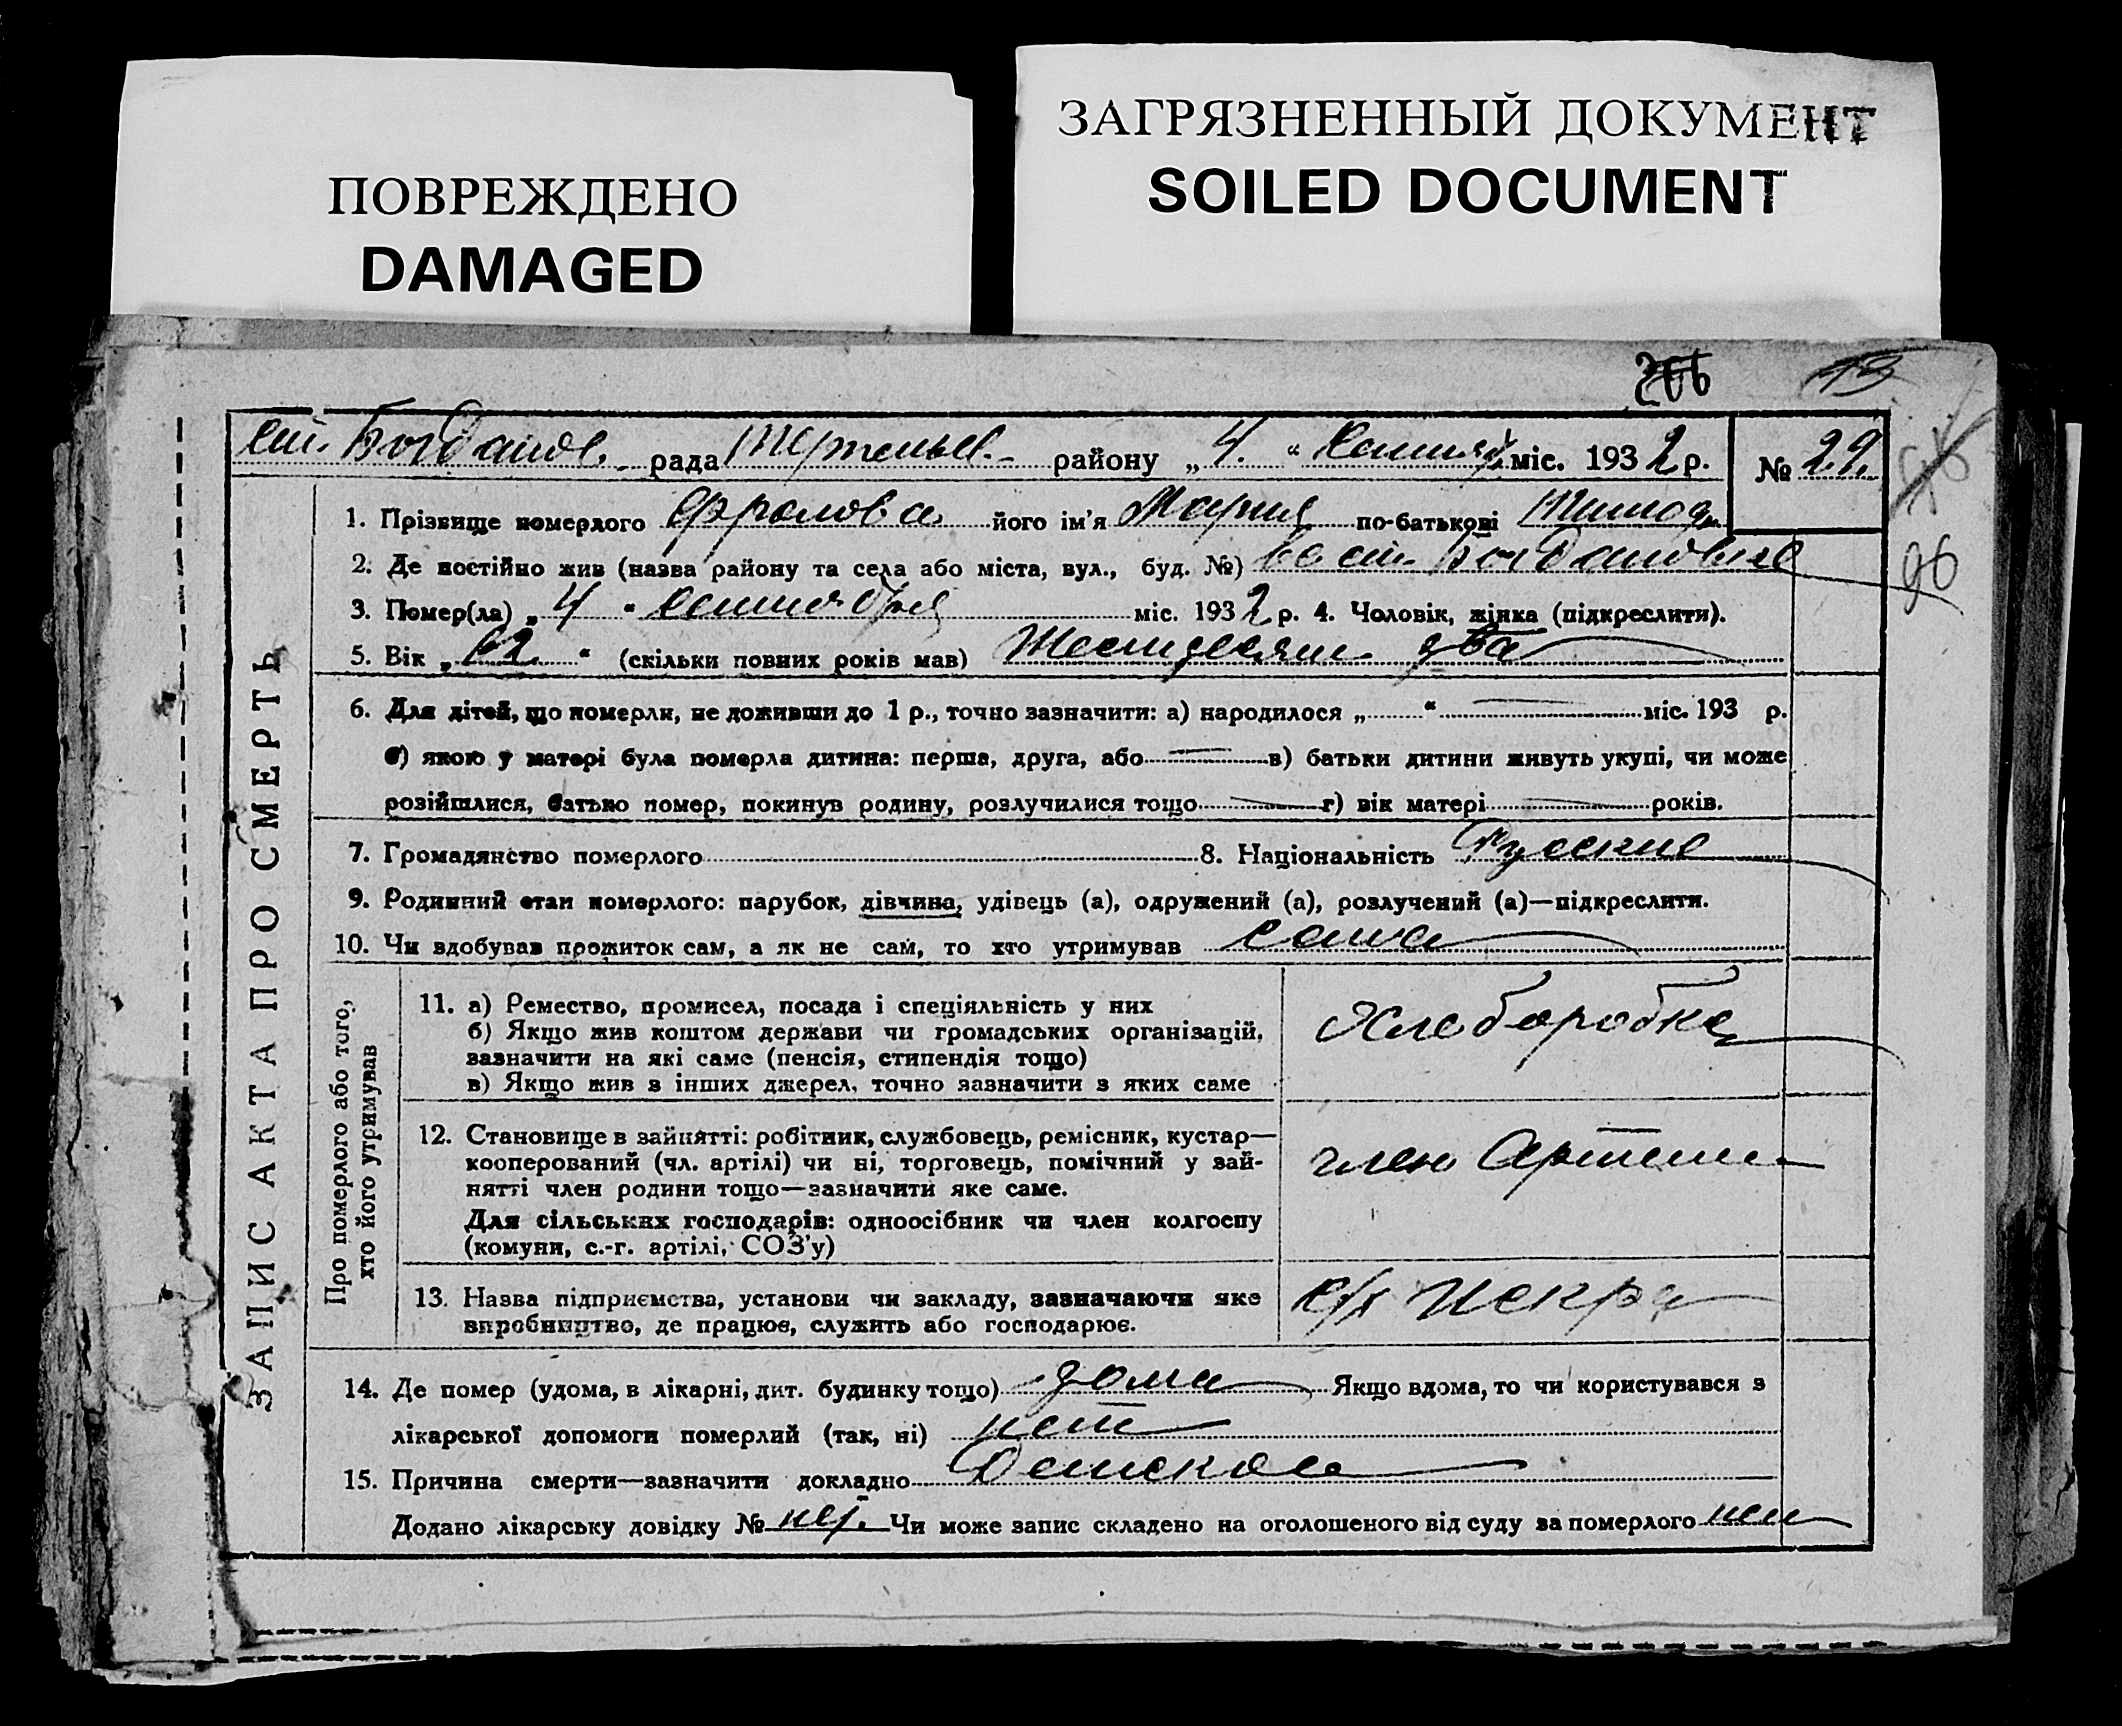 ПОВРЕЖДЕНО
DAMAGED
ЗАГРЯЗНЕННЫЙ ДОКУМЕНТ
SOILED DOCUMENT
рада району „4.“ міс. 1932 р. № 29.
96
ЗАПИС АКТА ПРО СМЕРТЬ
1. Прізвище померлого Фролова його ім'я Мария по-батькові Тимоф.
2. Де постійно жив (назва району та села або міста, вул., буд. №)
3. Помер(ла) „4“ сентября міс. 1932 р. 4. Чоловік, жінка (підкреслити).
5. Вік „62“ (скільки повних років мав) Шестдесят два
6. Для дітей, що померли, не доживши до 1 р., точно зазначити: а) народилося „ “ міс. 193 р.
б) якою у матері була померла дитина: перша, друга, або в) батьки дитини живуть укупі, чи може
розійшлися, батько помер, покинув родину, розлучилися тощо г) вік матері років.
7. Громадянство померлого 8. Національність Руские
9. Родинний стан померлого: парубок, дівчина, удівець (а), одружений (а), розлучений (а)—підкреслити.
10. Чи вдобував прожиток сам, а як не сам, то хто утримував сама
Про померлого або того,
хто його утримував
11. а) Ремество, промисел, посада і спеціяльність у них
б) Якщо жив коштом держави чи громадських організацій,
вазначити на які саме (пенсія, стипендія тощо)
в) Якщо жив з інших джерел, точно зазначити з яких саме
Хлеборобка
12. Становище в зайнятті: робітник, службовець, ремісник, кустар—
кооперований (чл. артілі) чи ні, торговець, помічний у зай-
нятті член родини тощо—зазначити яке саме.
Для сільських господарів: одноосібник чи член колгоспу
(комуни, с.-г. артілі, СОЗ'у)
член Артели
13. Назва підприємства, установи чи закладу, зазначаючи яке
виробництво, де працює, служить або господарює.
Искра
14. Де помер (удома, в лікарні, дит. будинку тощо) дома Якщо вдома, то чи користувався з
лікарської допомоги померлий (так, ні) нет
15. Причина смерти—зазначити докладно
Додано лікарську довідку № нет. Чи може запис складено на оголошеного від суду за померлого нет